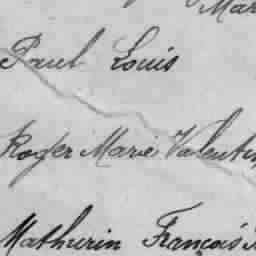 Mar
Paul Louis
Roger Marie Valentin
Mathurin François